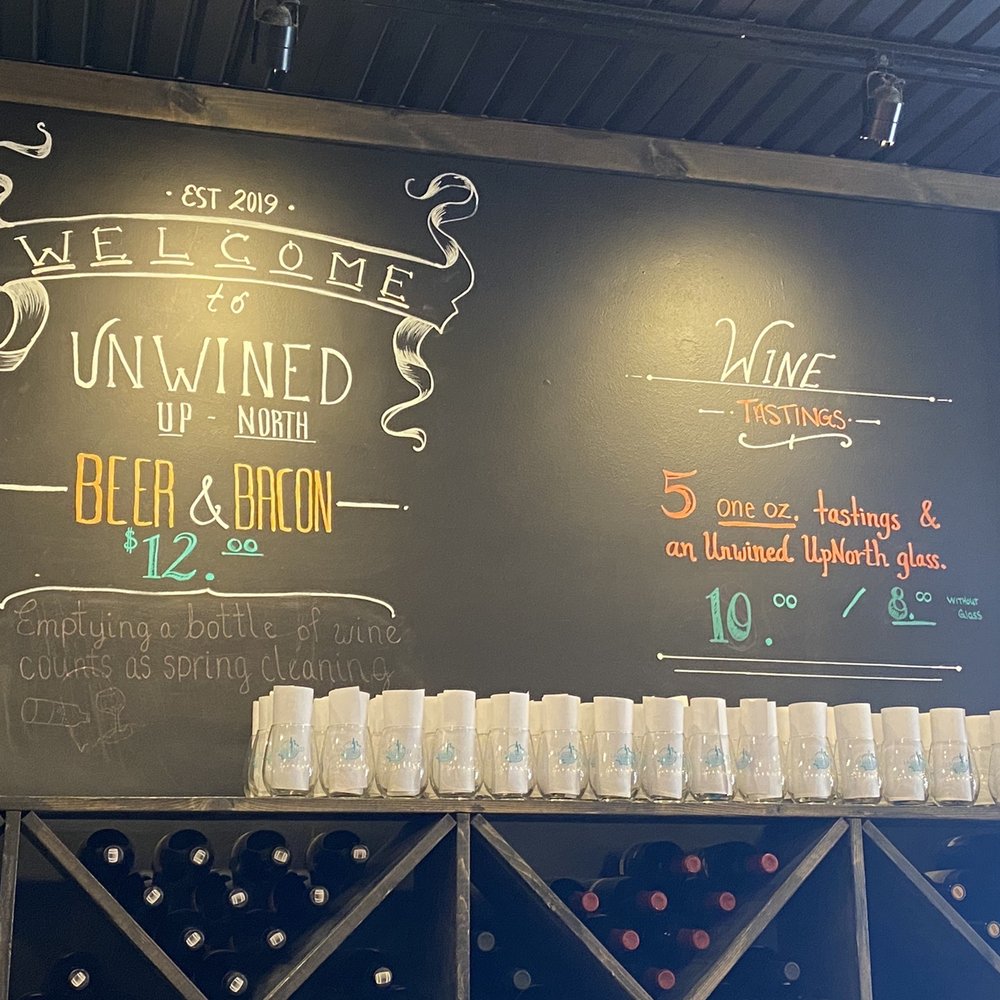 · EST 2019 ·
WELCOME
to
UNWINED
UP - NORTH
BEER & BACON
$12.00
Emptying a bottle of wine
counts as spring cleaning
WINE
TASTINGS
5 one oz. tastings &
an Unwined UpNorth glass.
10.00 / 8.00 WITHOUT
GLASS